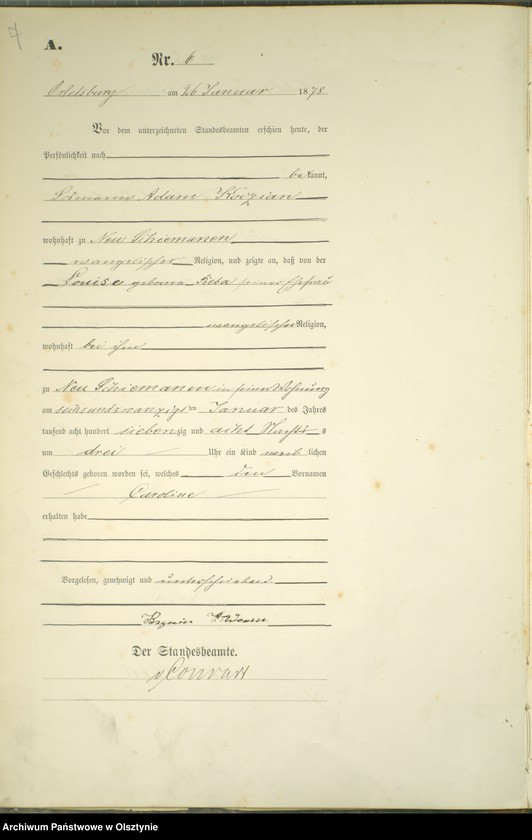 7
A.
Nr. 6
Ortelsburg am 26 Januar 1878
Vor dem unterzeichneten Standesbeamten erschien heute, der
Persönlichkeit nach
bekannt,
Adam Kozian
wohnhaft zu Neu Schiemanen
evangelischer Religion, und zeigte an, daß von der
Louise geborne seiner Ehefrau
evangelischer Religion,
wohnhaft bei ihm
zu Neu Schiemanen in seiner Wohnung
am sechsundzwanzigsten Januar des Jahres
tausend acht hundert siebenzig und acht Nachts
um drei Uhr ein Kind weiblichen
Geschlechts geboren worden sei, welches den Vornamen
Caroline
erhalten habe
Vorgelesen, genehmigt und unterschrieben
Der Standesbeamte.
Archiwum Państwowe w Olsztynie